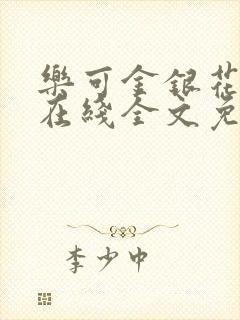 樂可金銀花
在綫全文免
李少中